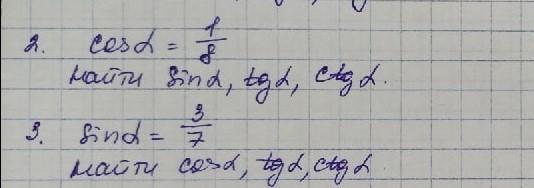 2. cos α = 1/8
найти sin α, tg α, ctg α.
3. sin α = 3/7
найти cos α, tg α, ctg α